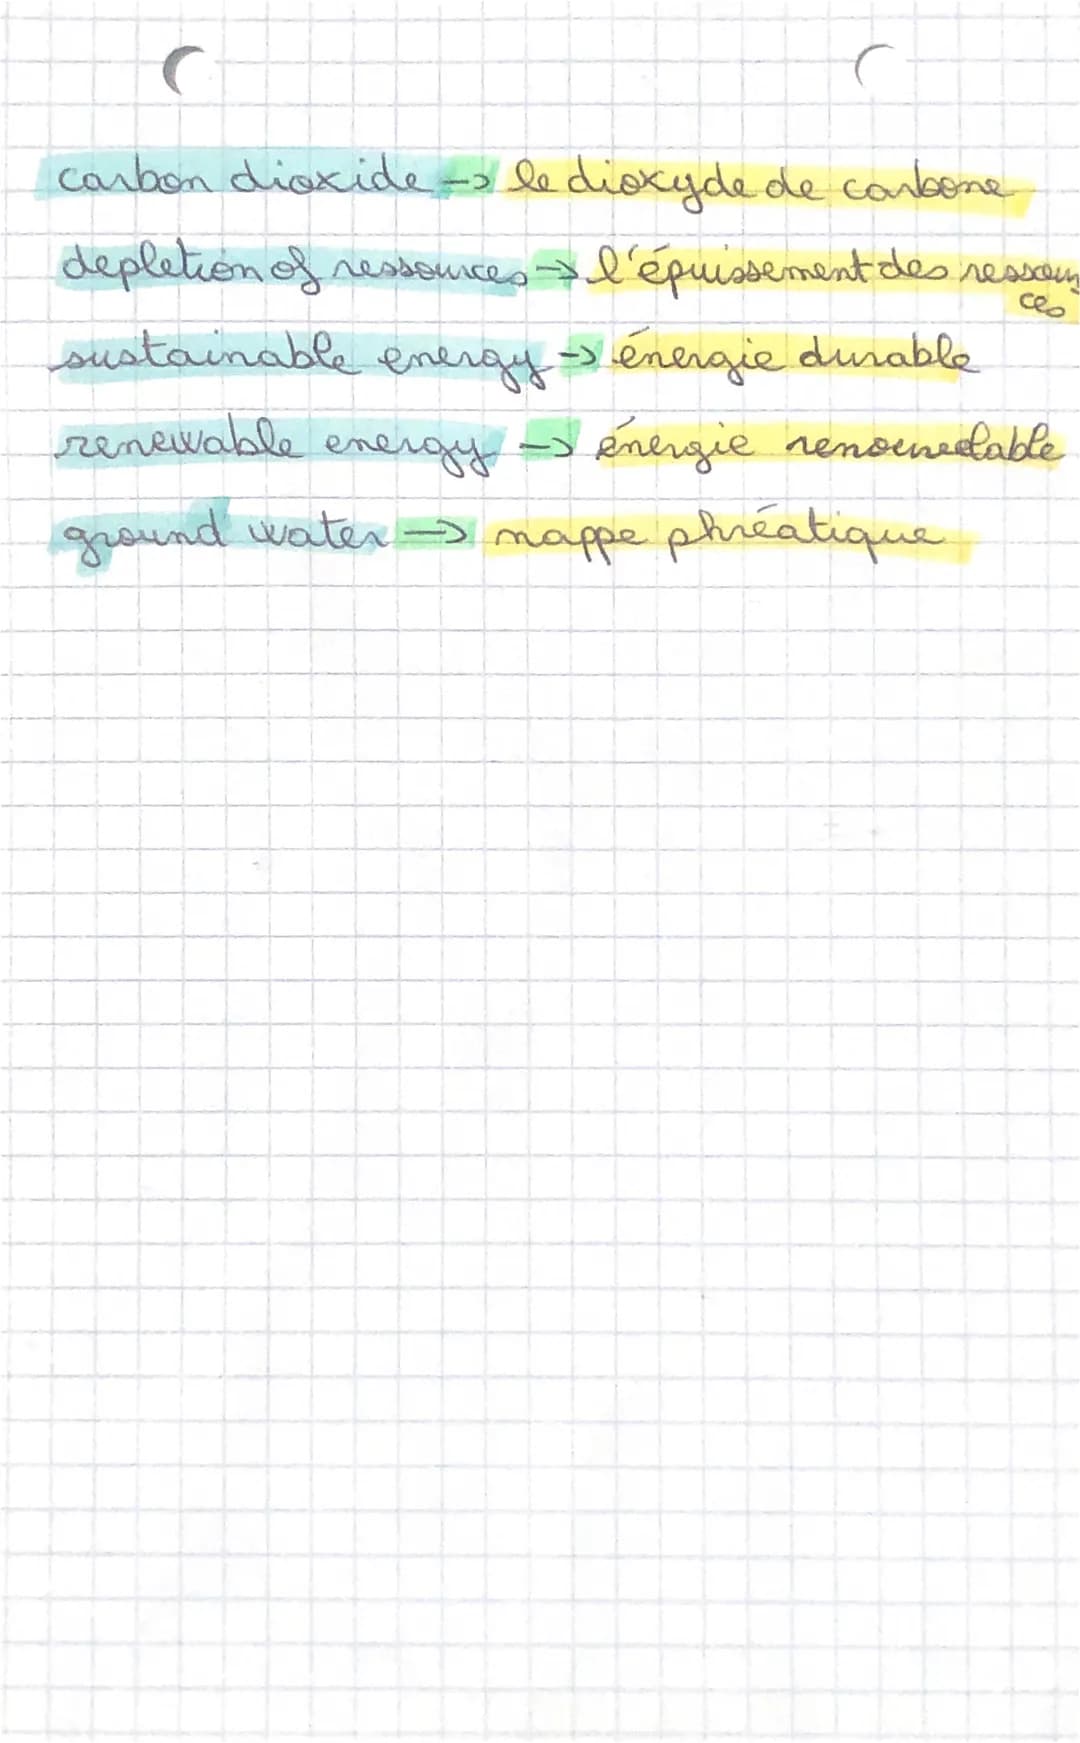 carbon dioxide -> le dioxyde de carbone
depletion of ressources -> l'épuissement des ressour
ces
sustainable energy -> énergie durable
renewable energy -> énergie renouvelable
ground water -> nappe phréatique